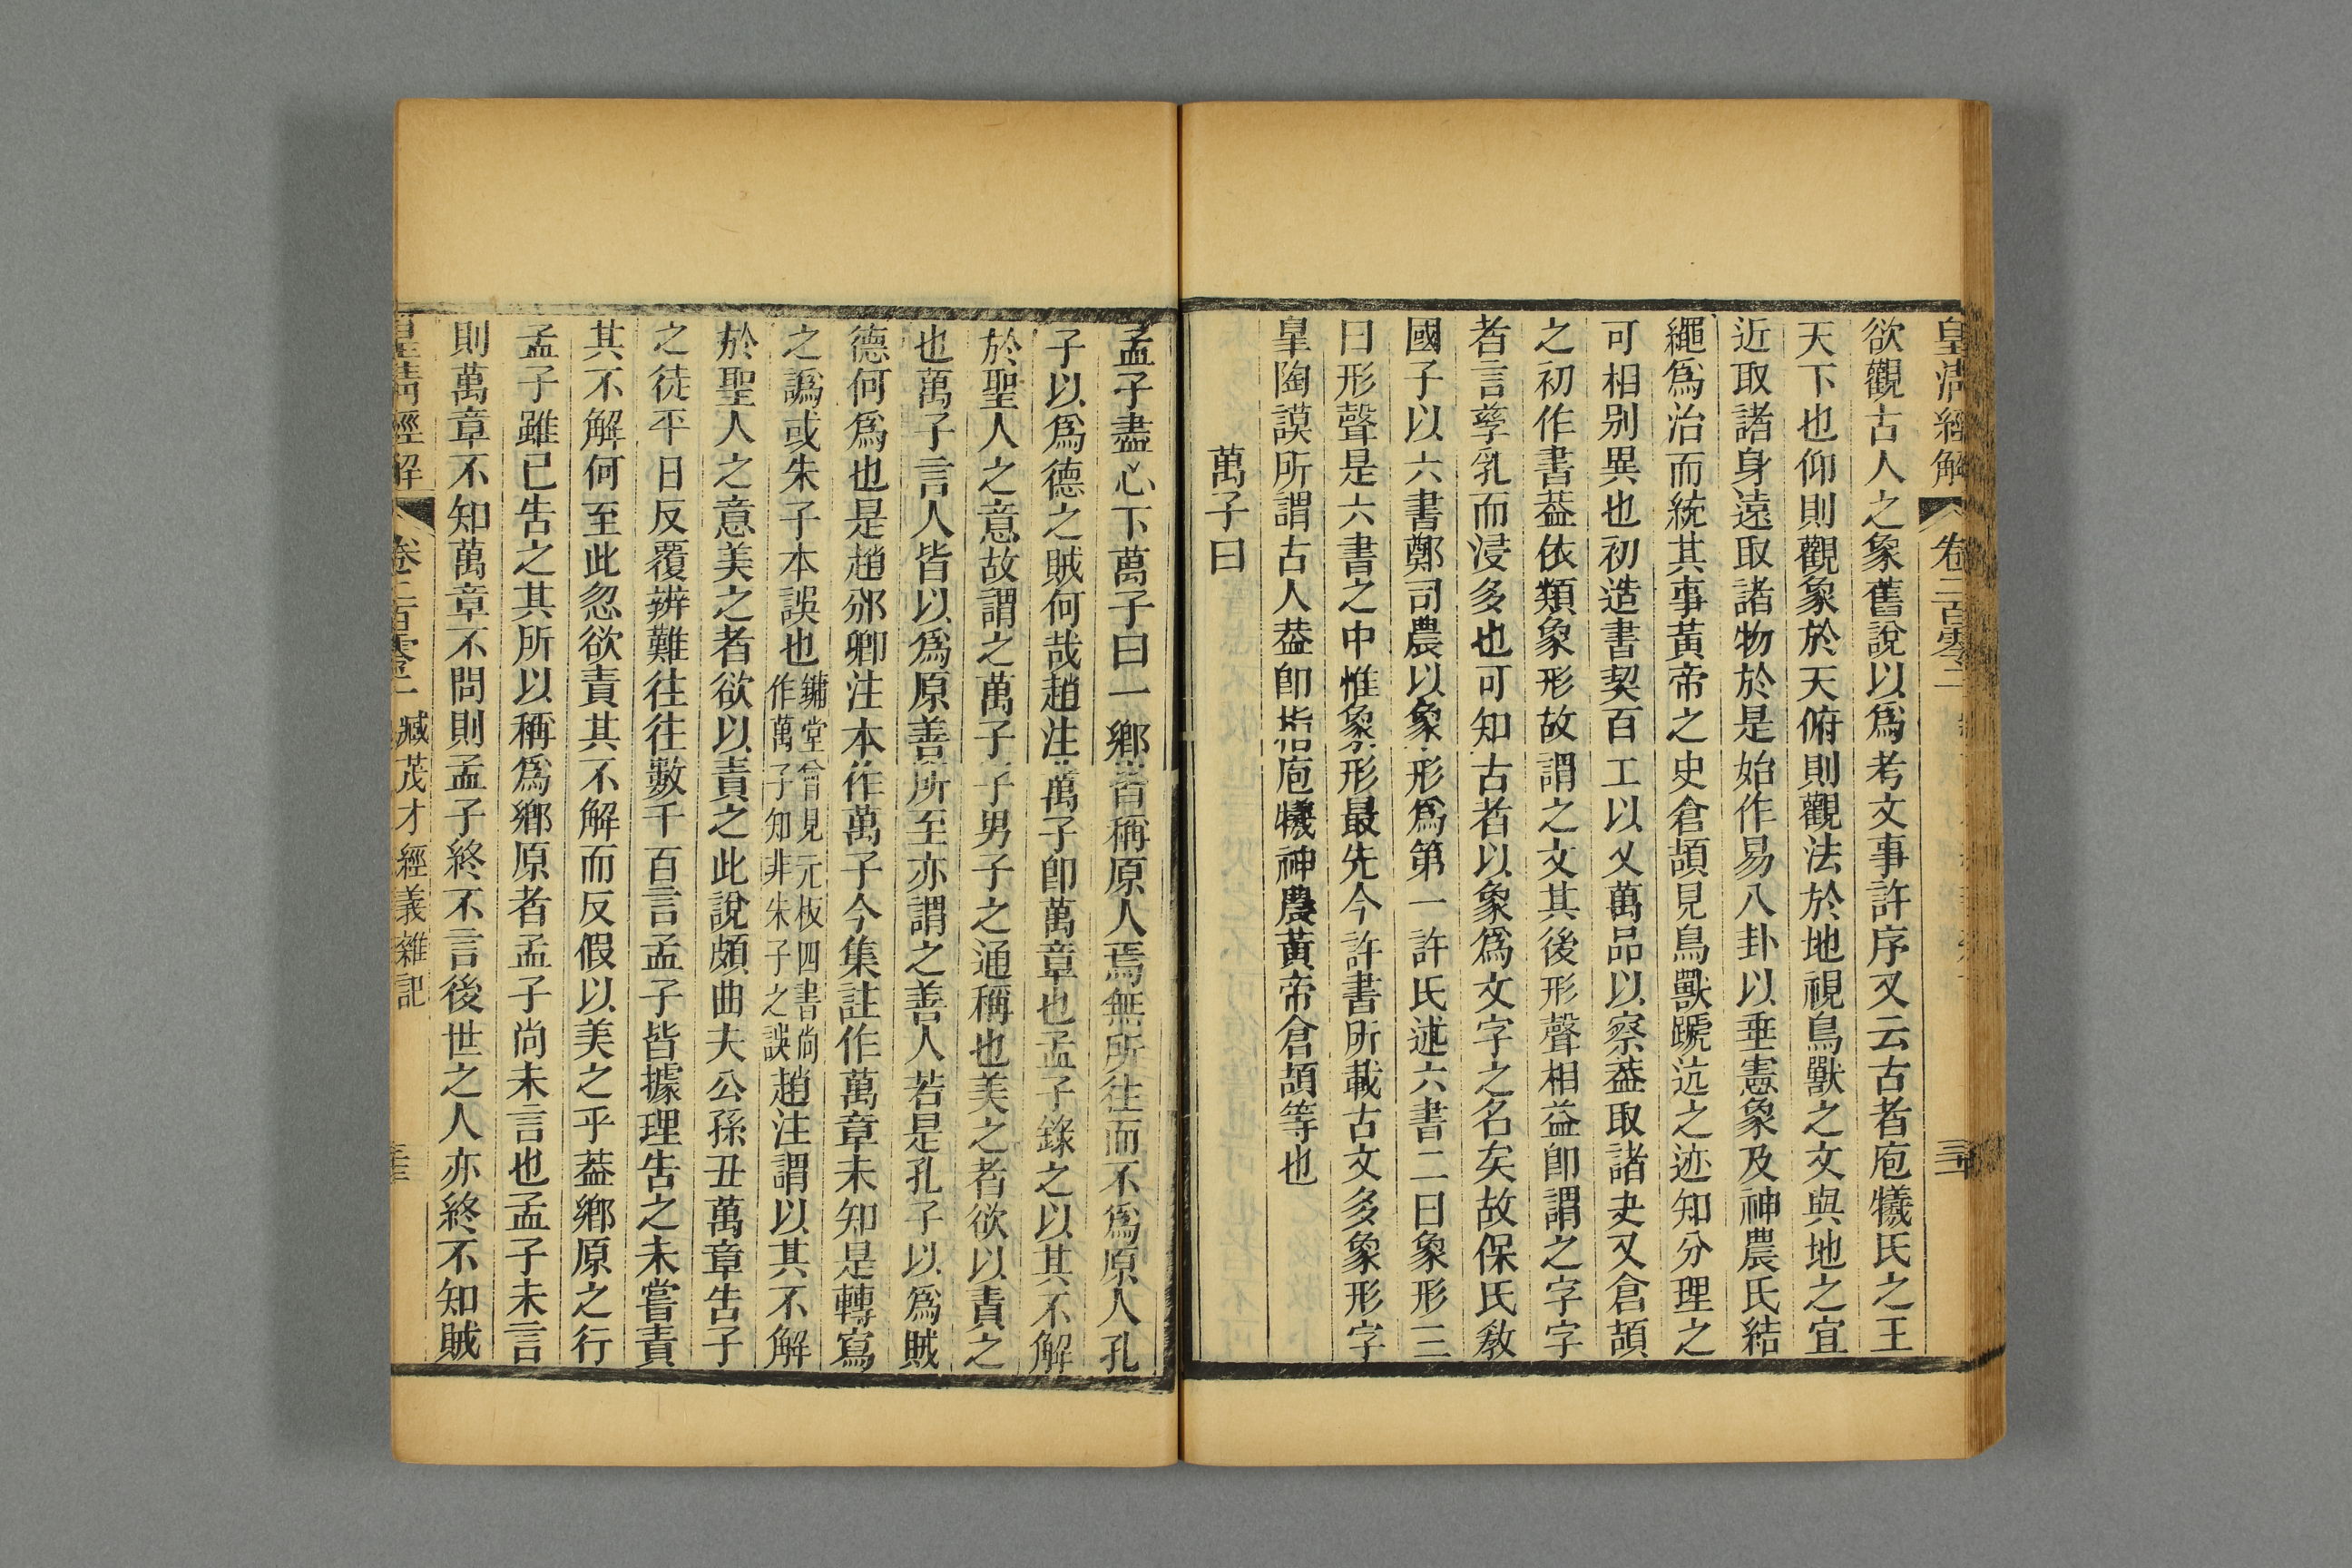 皇清經解 卷二百零二
欲觀古人之象舊說以爲考文事許序又云古者庖犧氏之王
天下也仰則觀象於天俯則觀法於地視鳥獸之文與地之宜
近取諸身遠取諸物於是始作易八卦以垂憲象及神農氏結
繩爲治而統其事黃帝之史倉頡見鳥獸蹏迒之迹知分理之
可相别異也初造書契百工以乂萬品以察葢取諸夬又倉頡
之初作書葢依類象形故謂之文其後形聲相益卽謂之字字
者言孳乳而浸多也可知古者以象爲文字之名矣故保氏敎
國子以六書鄭司農以象形爲第一許氏述六書二曰象形三
曰形聲是六書之中惟象形最先今許書所載古文多象形字
皐陶謨所謂古人葢卽指庖犧神農黃帝倉頡等也
萬子曰
孟子盡心下萬子曰一鄉皆稱原人焉無所往而不爲原人孔
子以爲德之賊何哉趙注萬子卽萬章也孟子錄之以其不解
於聖人之意故謂之萬子子男子之通稱也美之者欲以責之
也萬子言人皆以爲原善所至亦謂之善人若是孔子以爲賊
德何爲也是趙邠卿注本作萬子今集註作萬章未知是轉寫
之譌或朱子本誤也鏞堂曾見元板四書尙作萬子知非朱子之誤趙注謂以其不解
於聖人之意美之者欲以責之此說頗曲夫公孫丑萬章告子
之徒平日反覆辨難往往數千百言孟子皆據理告之未嘗責
其不解何至此忽欲責其不解而反假以美之乎葢鄉原之行
孟子雖已告之其所以稱爲鄉原者孟子尙未言也孟子未言
則萬章不知萬章不問則孟子終不言後世之人亦終不知賊
皇清經解 卷二百零二 臧茂才經義雜記